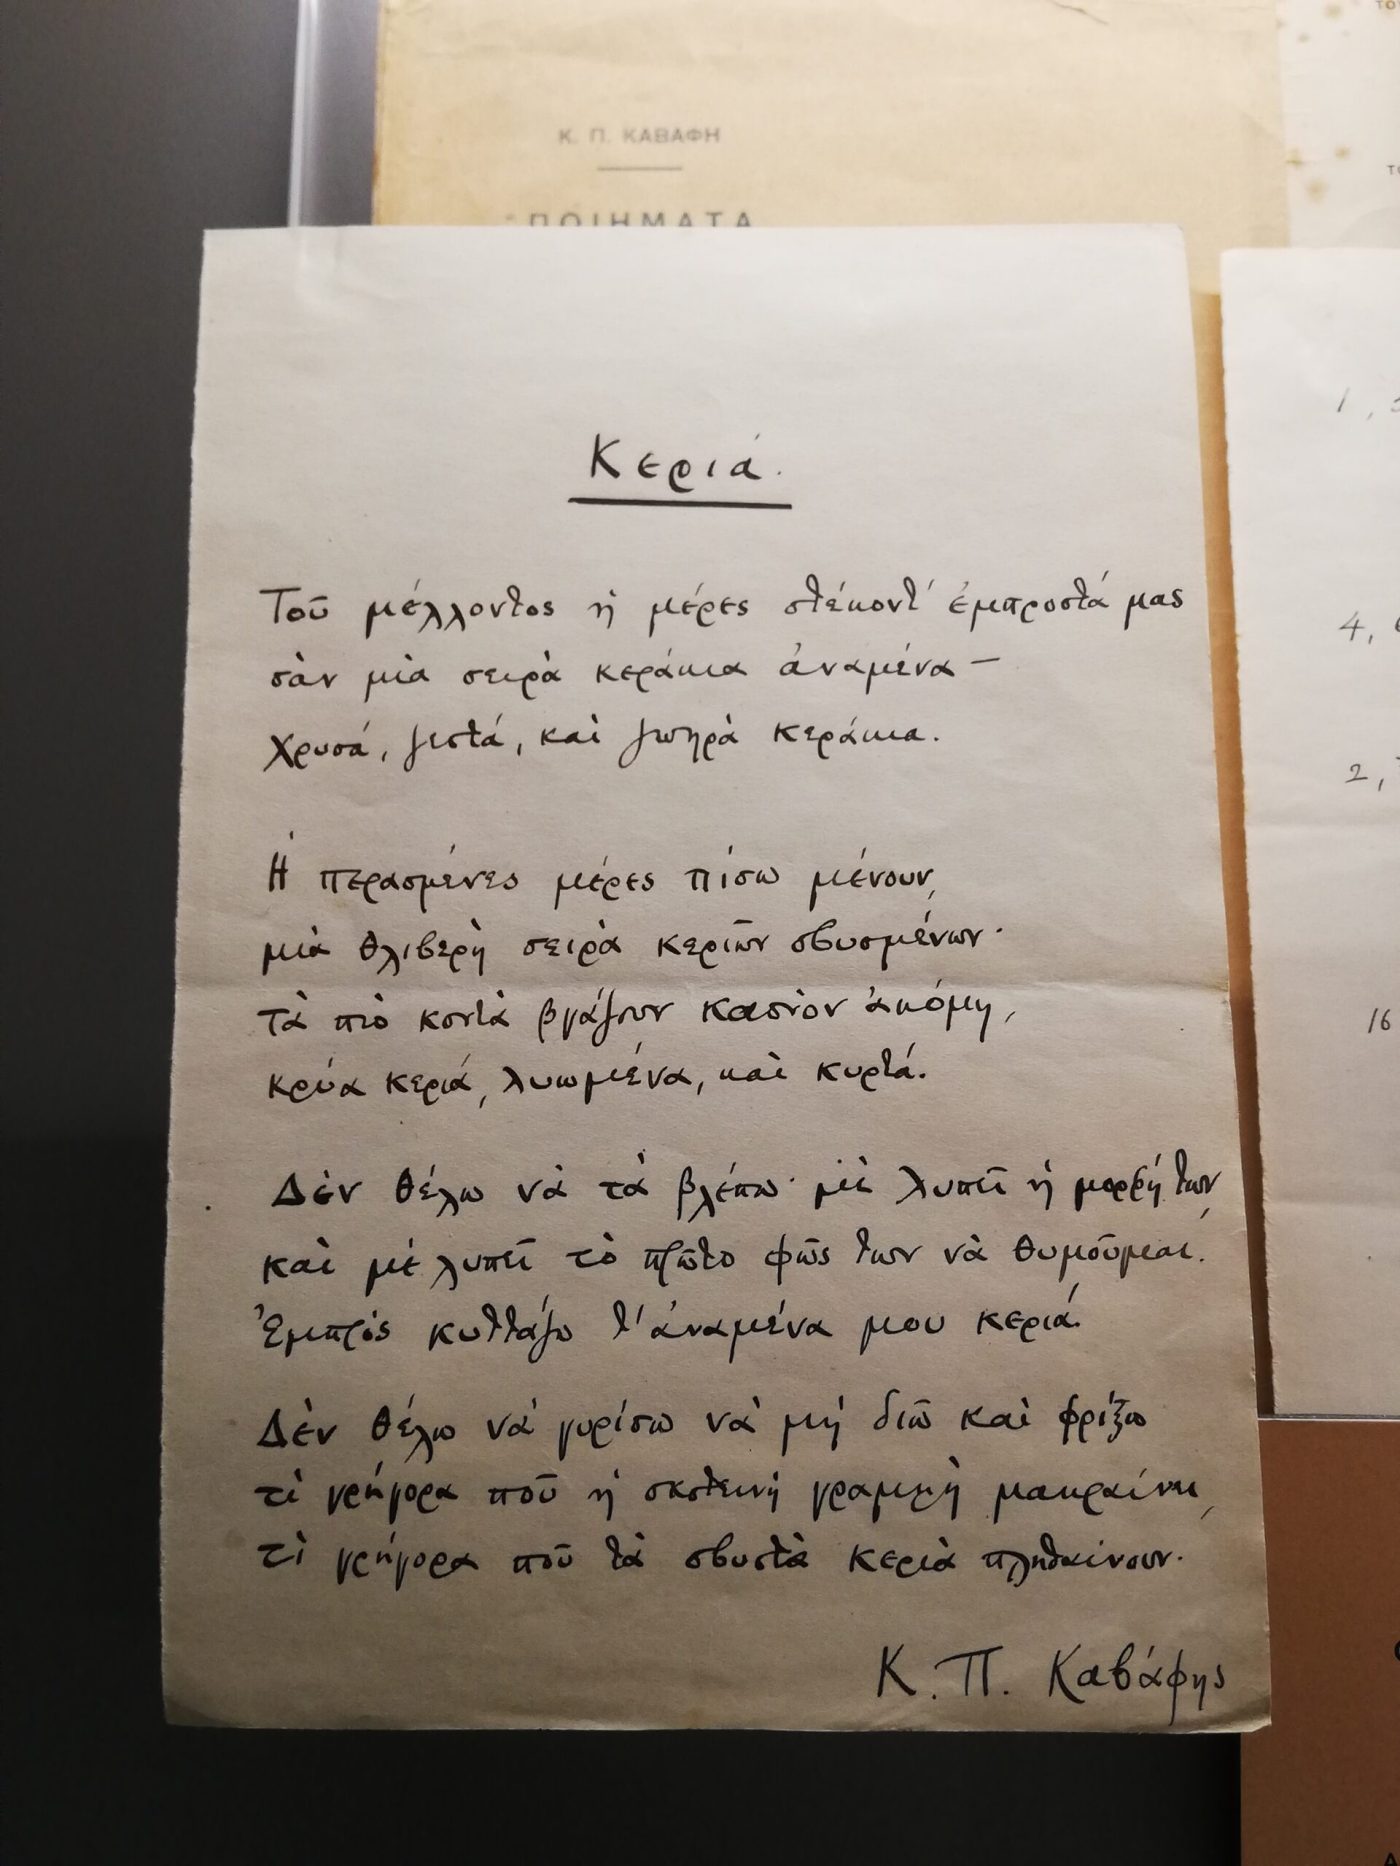 Κ. Π. ΚΑΒΑΦΗ
ΠΟΙΗΜΑΤΑ
Κεριά.
Τοῦ μέλλοντος ἡ μέρες στέκοντ' ἐμπροστά μας
σὰν μιὰ σειρὰ κεράκια ἀναμένα —
χρυσά, ζεστά, καὶ ζωηρὰ κεράκια.
Ἡ περασμένες μέρες πίσω μένουν,
μιὰ θλιβερὴ σειρὰ κεριῶν σβυσμένων·
τὰ πιὸ κοντὰ βγάζουν καπνὸν ἀκόμη,
κρύα κεριά, λυωμένα, καὶ κυρτά.
Δὲν θέλω νὰ τὰ βλέπω· μὲ λυπεῖ ἡ μορφή των,
καὶ μὲ λυπεῖ τὸ πρῶτο φῶς των νὰ θυμοῦμαι.
Ἐμπρὸς κυττάζω τ' ἀναμένα μου κεριά.
Δὲν θέλω νὰ γυρίσω νὰ μὴ διῶ καὶ φρίξω
τὶ γρήγορα ποῦ ἡ σκοτεινὴ γραμμὴ μακραίνει,
τὶ γρήγορα ποῦ τὰ σβυστὰ κεριὰ πληθαίνουν.
Κ. Π. Καβάφης
4,
2,
16